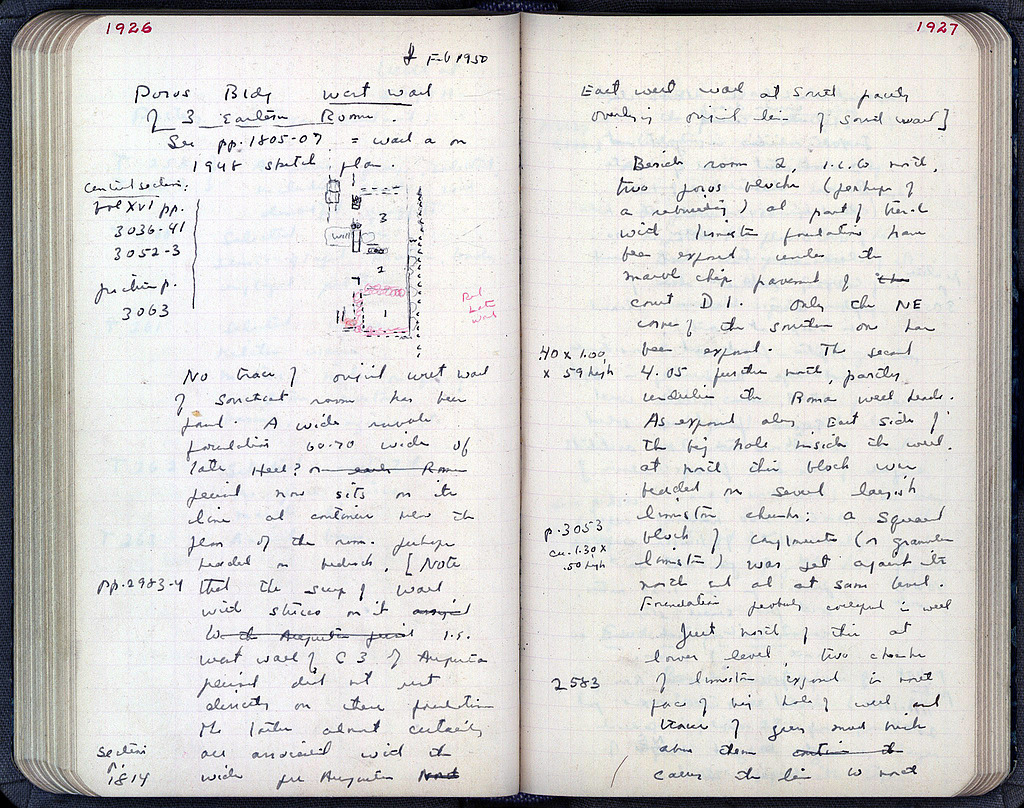 1926
Feb 1950
Poros Bldg west wall
of 3 Eastern Rooms.
See pp. 1805-07 = wall a on
1948 sketch plan.
central section:
vol XVI pp.
3036-41
3052-3
section p.
3063
3
well
2
1
Red
late
wall
No trace of original west wall
of southeast room has been
found. A wide
foundation 60-70 wide of
late Hell? or early Roman
period now sits on its
line and continues here the
plan of the room. perhaps
bedded on bedrock. [Note
pp. 2983-4
that the scrap of wall
with stucco on it assigned
to the Augustan period i.e.
west wall of C 3 of Augustan
period did not rest
directly on these foundations
The latter almost certainly
are associated with the
section
p.
1814
wide pre Augustan
1927
East west wall at South partly
overlying original line of south wall]
Beside room 2, i.e. to north,
two poros blocks (perhaps of
a rebuilding) and part of trench
with limestone foundation have
been exposed under the
marble chip pavement of the
court D 1. Only the NE
corner of the southern one has
been exposed. The second
.40 x 1.00
x 59 high
4.05 further north, partly
underlies the Roman well head.
As exposed along East side of
the big hole inside the well
at north this block was
bedded on several largish
limestone chunks; a squared
p. 3053
ca. 1.30 x
.50 high
block of conglomerate (or
limestone) was set against its
north end and at same level.
Foundation probably collapsed in well
Just north of this at
lower level, two chunks
2583
of limestone exposed in north
face of big hole of well and
trace of green mud brick
above them continue the
carry the line to north